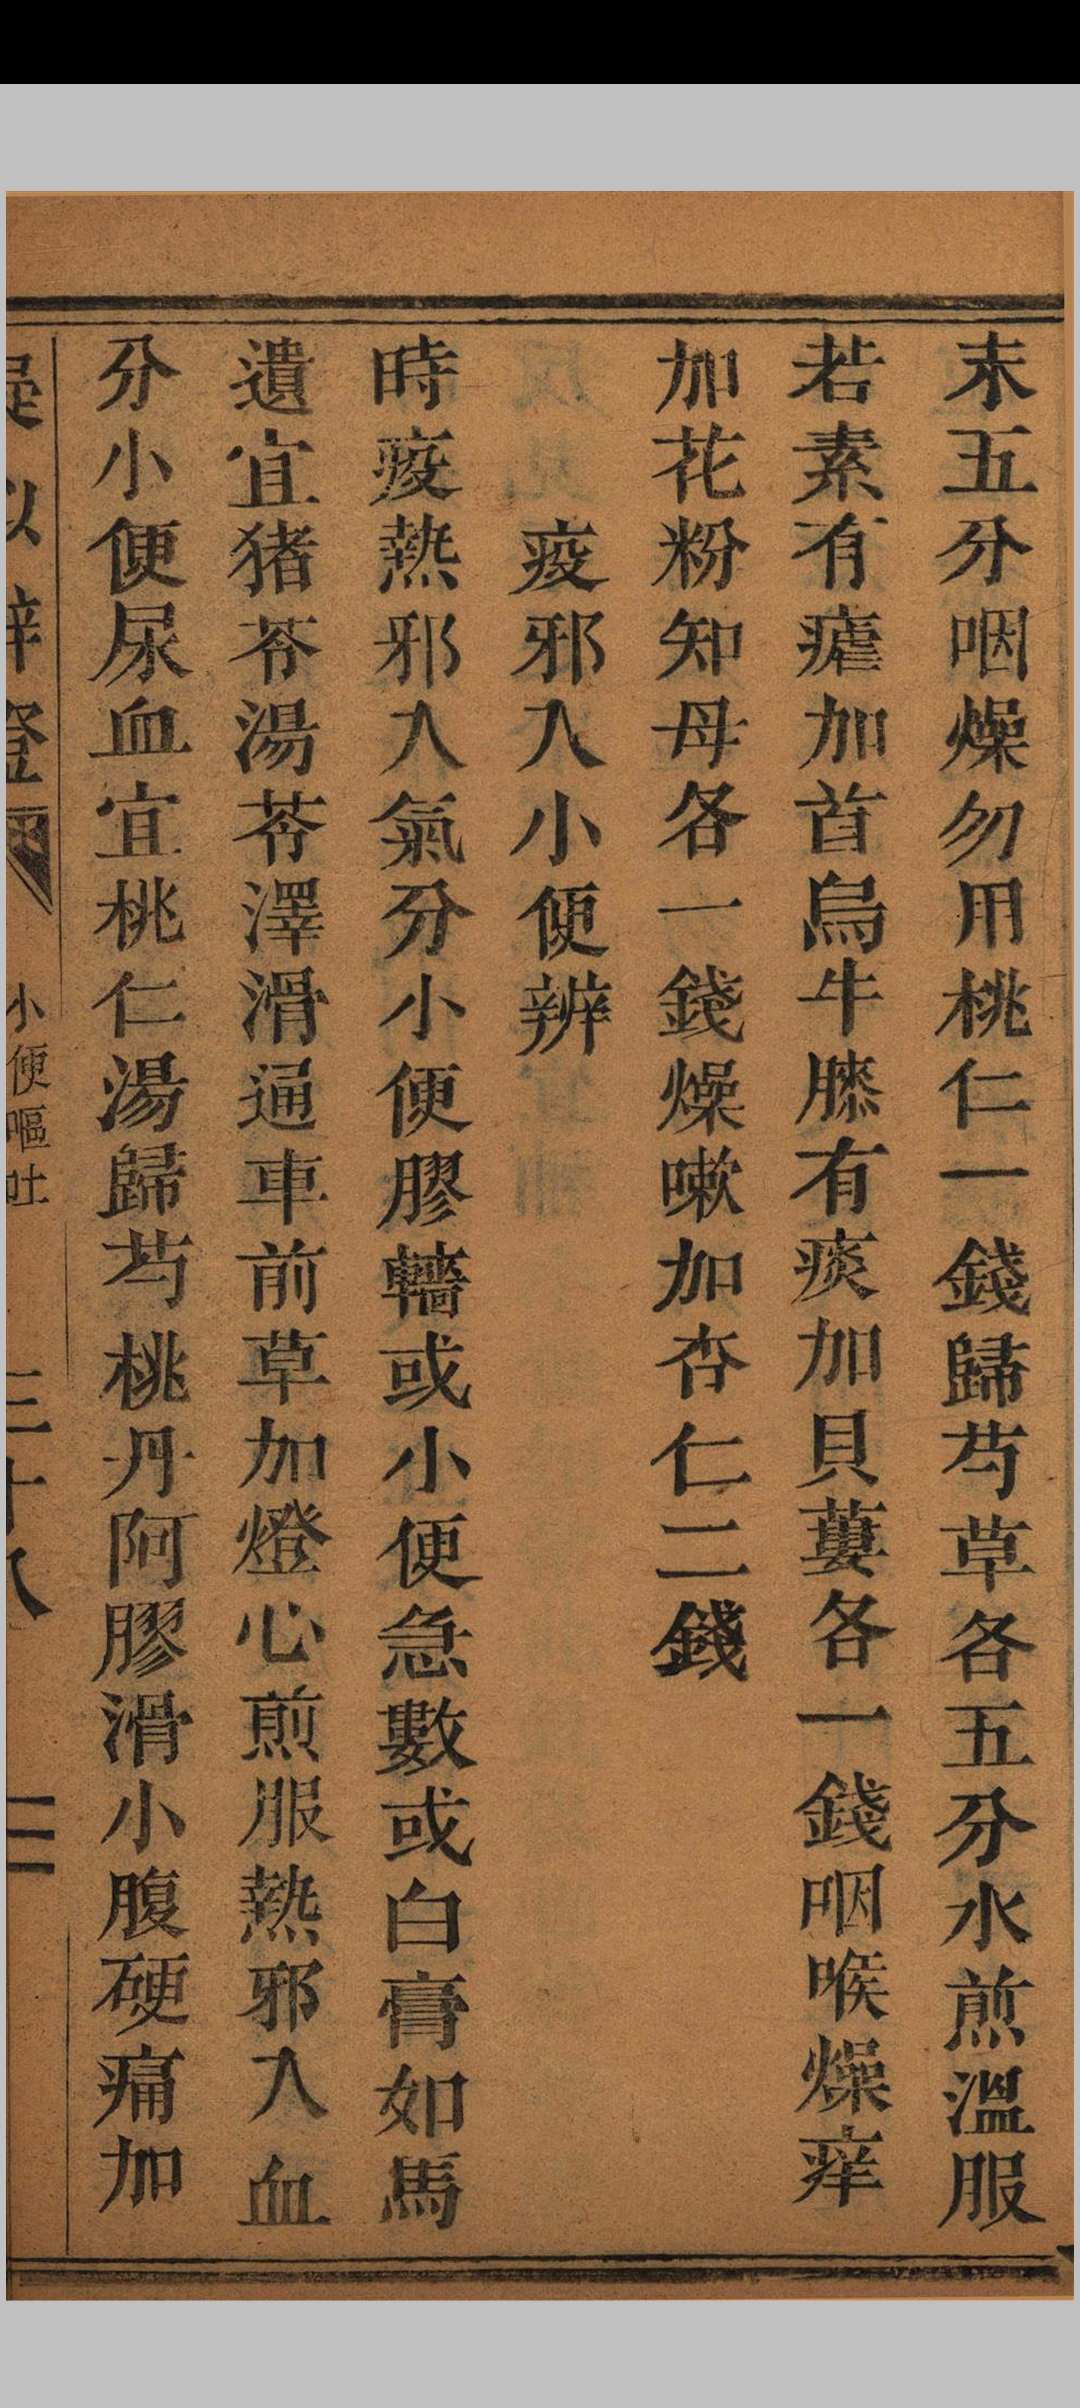 末五分咽燥勿用桃仁一錢歸芍草各五分水煎溫服
若素有瘧加首烏牛膝有痰加貝蔞各一錢咽喉燥痒
加花粉知母各一錢燥嗽加杏仁二錢
疫邪入小便辨
時疫熱邪入氣分小便膠轖或小便急數或白膏如馬
遺宜猪苓湯苓澤滑通車前草加燈心煎服熱邪入血
分小便尿血宜桃仁湯歸芍桃丹阿膠滑小腹硬痛加
小便嘔吐
三十八